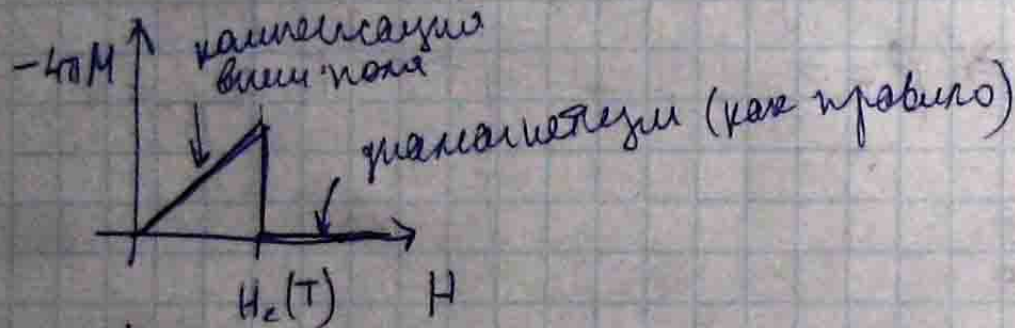 -4πM
компенсация
внеш. поля
диамагнетизм (как правило)
Hc(T) H